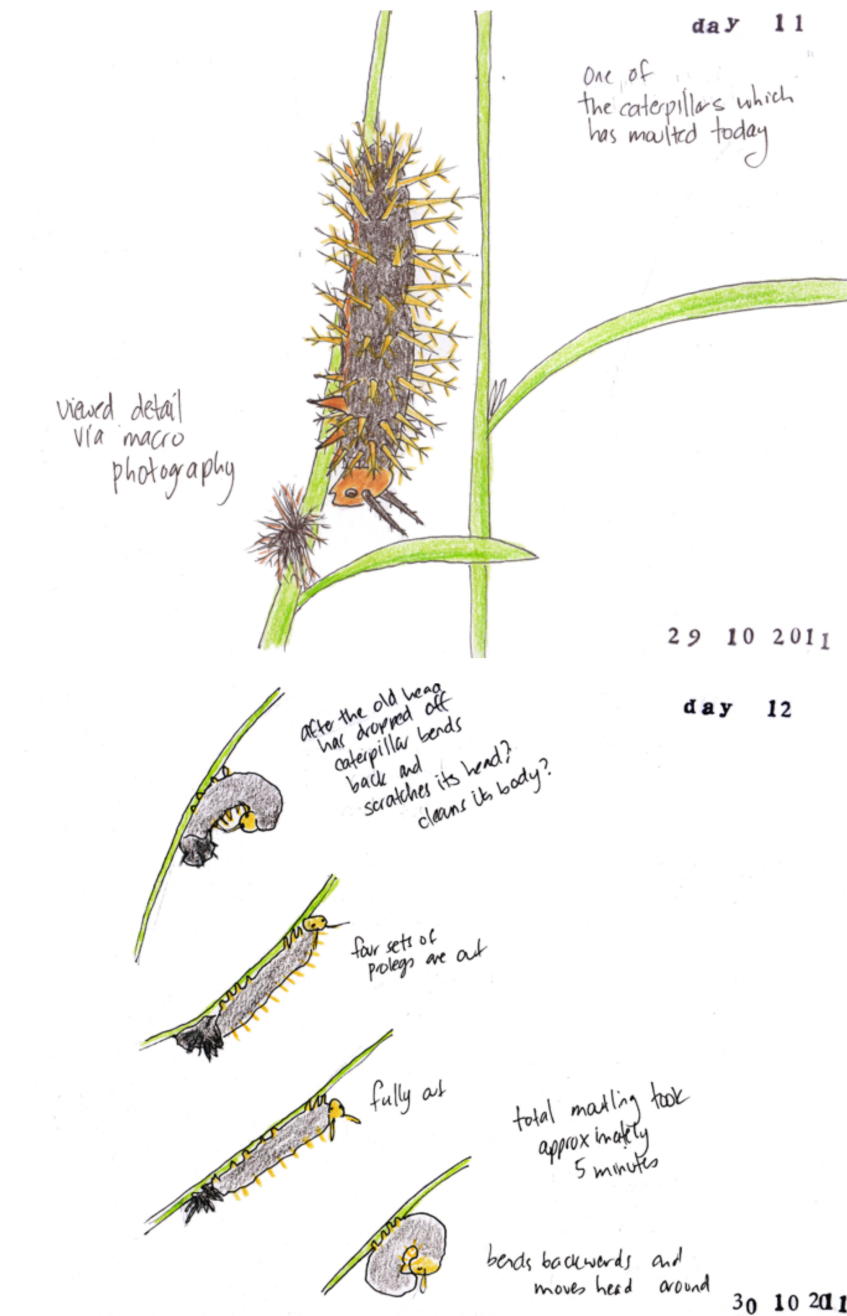 day 11
one of
the caterpillars which
has moulted today
viewed detail
via macro
photography
29 10 2011
day 12
after the old head
has dropped off
caterpillar bends
back and
scratches its head?
cleans its body?
four sets of
prolegs are out
fully out
total moulting took
approximately
5 minutes
bends backwards and
moves head around
30 10 2011